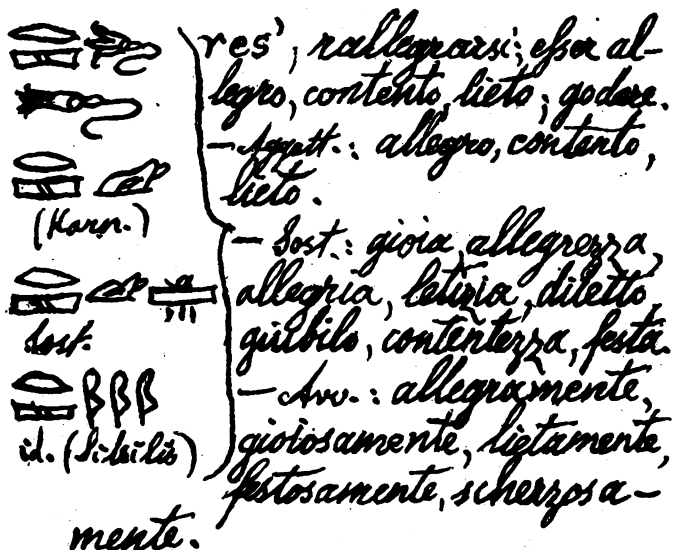 res', rallegrarsi; esser al-
legro, contento, lieto; godere.
— Aggett.: allegro, contento,
lieto.
(Harn.)
— Sost.: gioia, allegrezza,
allegria, letizia, diletto,
Sost.
giubilo, contentezza, festa.
— Avv.: allegramente,
id. (Silsilis)
gioiosamente, lietamente,
festosamente, scherzosa-
mente.